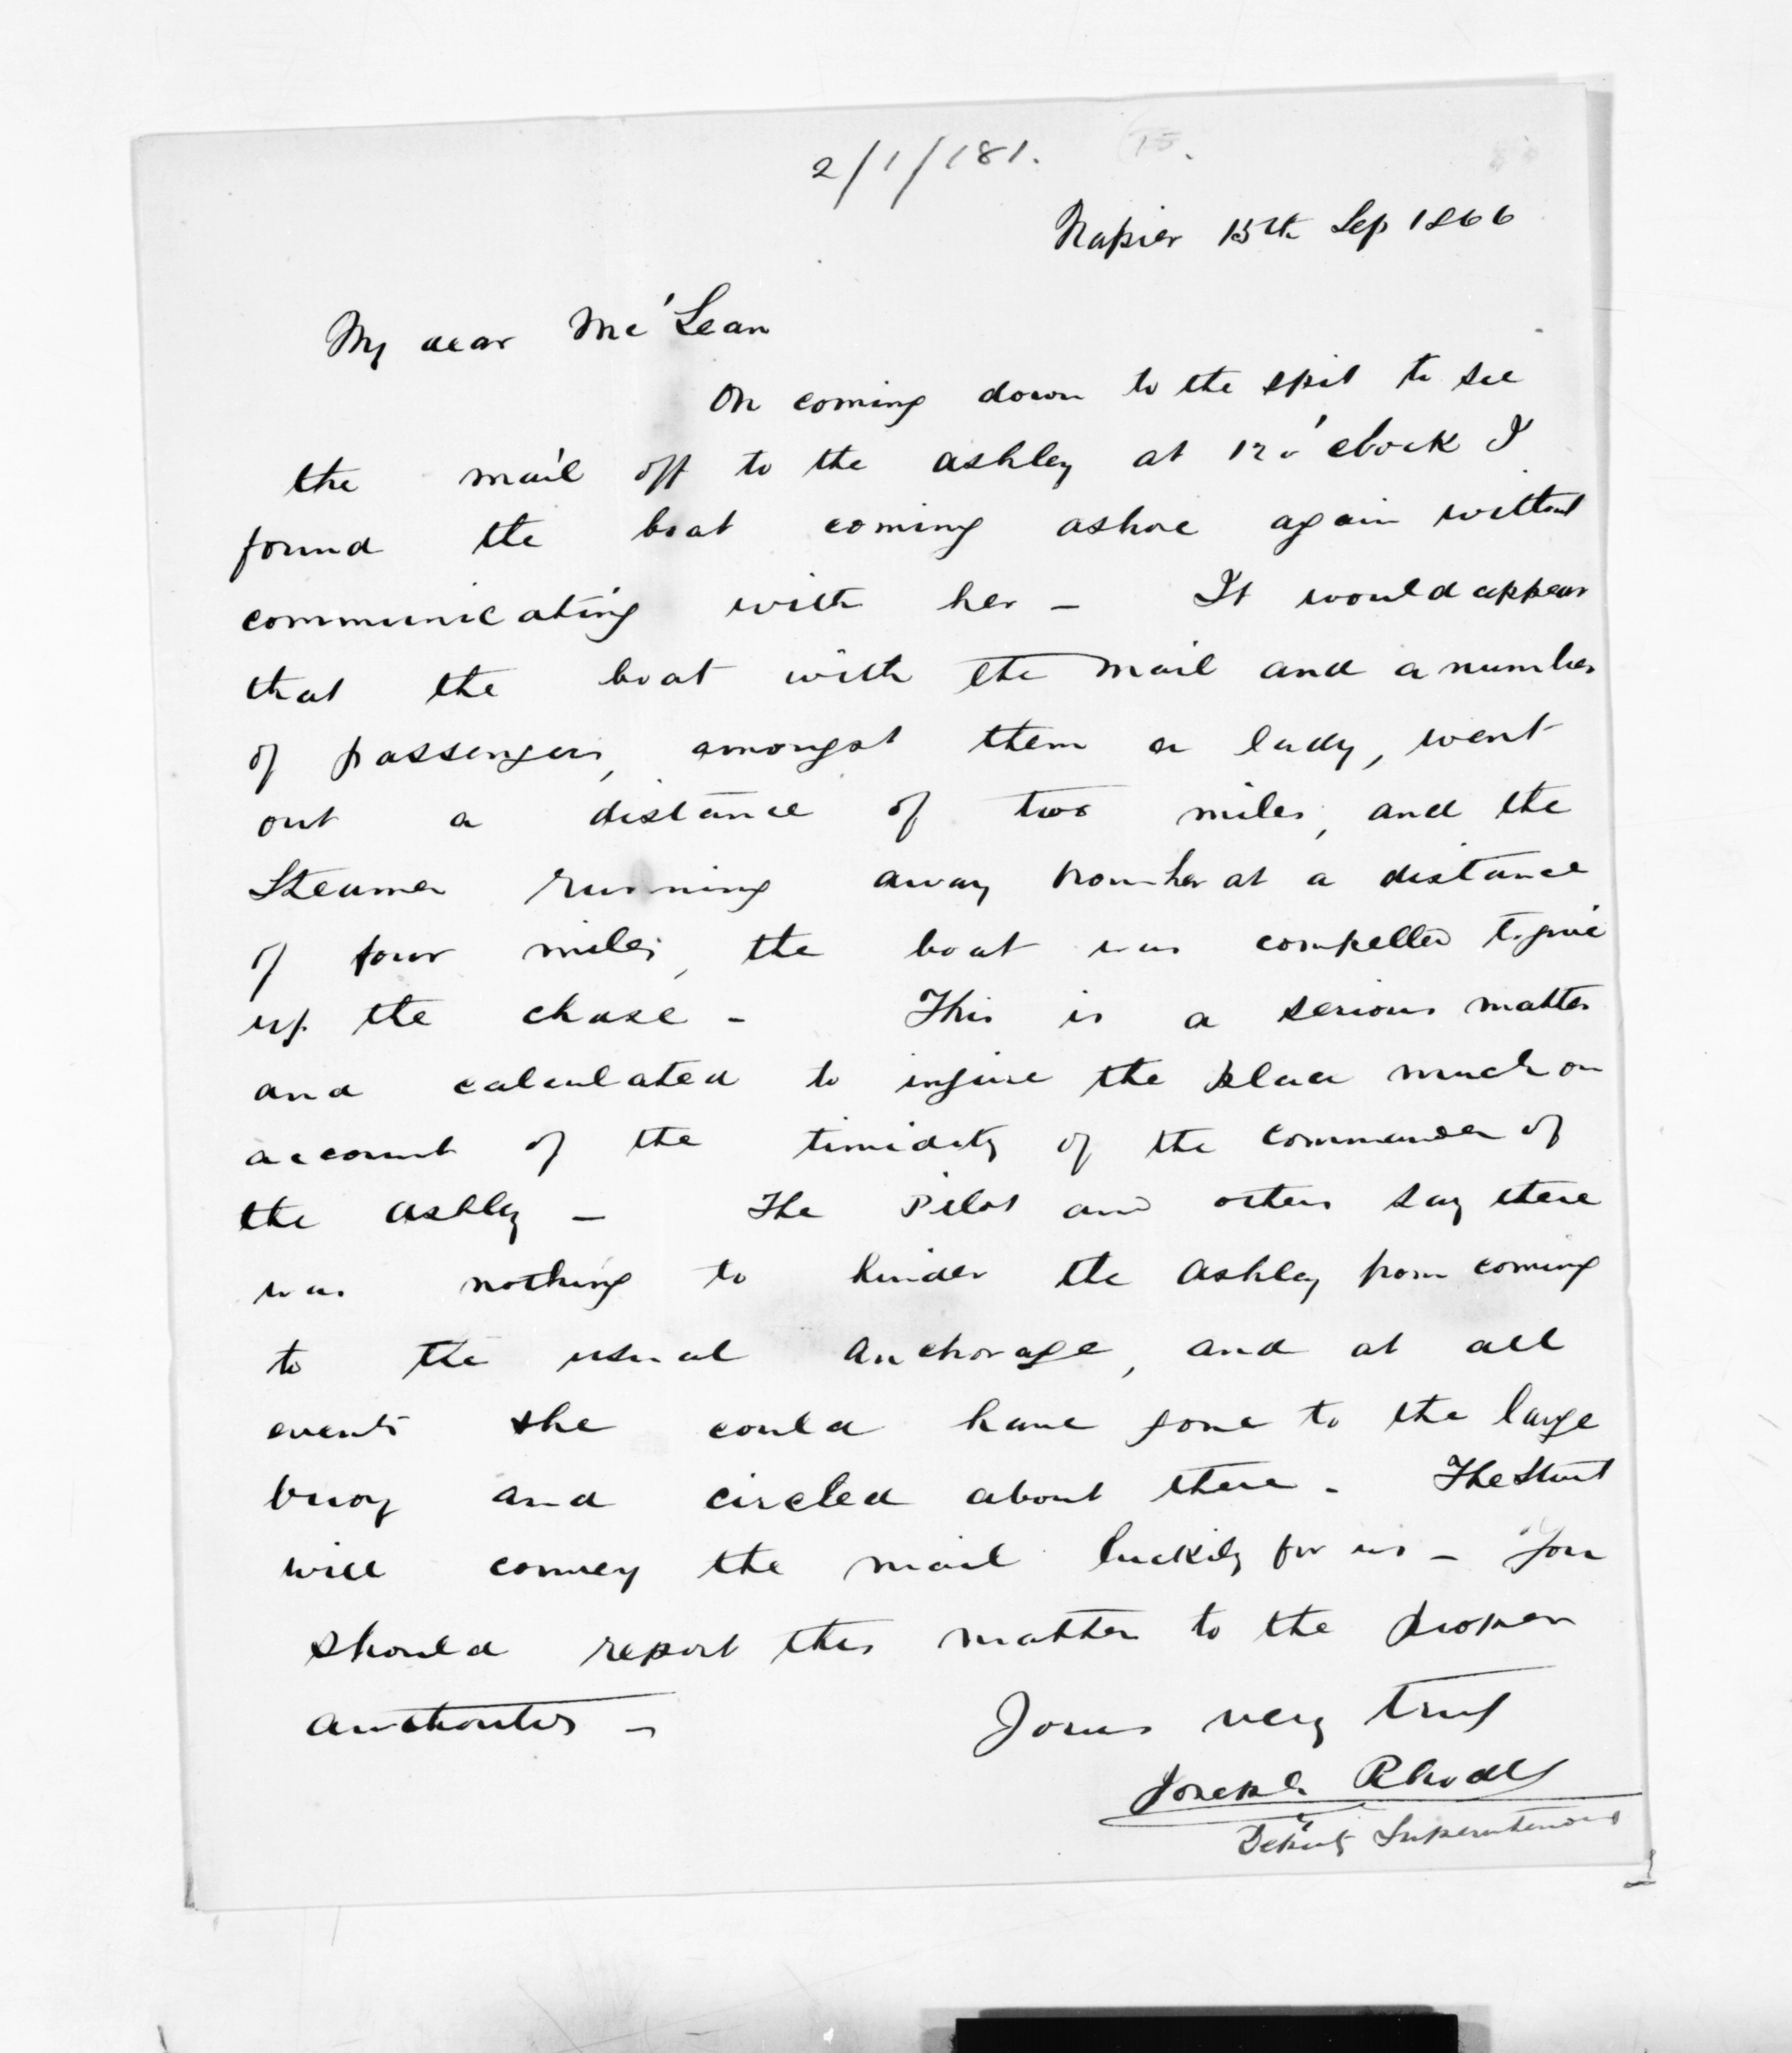 2/1/181.
Napier 15th Sep 1866
My dear McLean
On coming down to the spit to see
the mail off to the Ashley at 12 o'clock I
found the boat coming ashore again without
communicating with her - It would appear
that the boat with the mail and a number
of passengers, amongst them a lady, went
out a distance of two miles, and the
Steamer running away from her at a distance
of four miles, the boat was compelled to give
up the chase - This is a serious matter
and calculated to injure the place much on
account of the timidity of the commander of
the Ashley - The Pilot and others say there
was nothing to hinder the Ashley from coming
to the usual anchorage, and at all
events she could have gone to the large
buoy and circled about there - The Sturt
will convey the mail luckily for us - You
should report this matter to the proper
authorities -
Yours very truly
Joseph Rhodes
Deputy Superintendent